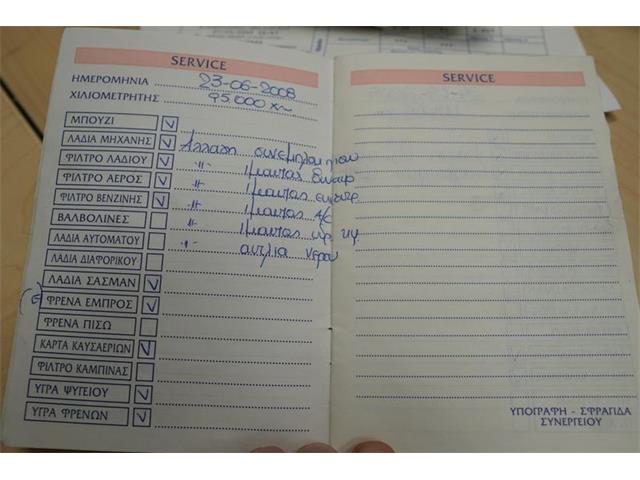 SERVICE
ΗΜΕΡΟΜΗΝΙΑ 23-06-2008
ΧΙΛΙΟΜΕΤΡΗΤΗΣ 95.000 χλ
ΜΠΟΥΖΙ
ΛΑΔΙΑ ΜΗΧΑΝΗΣ Αλλαγη
ΦΙΛΤΡΟ ΛΑΔΙΟΥ -〃- Ιμαντας
ΦΙΛΤΡΟ ΑΕΡΟΣ 〃 Ιμαντας
ΦΙΛΤΡΟ ΒΕΝΖΙΝΗΣ 〃 Ιμαντας A/C
ΒΑΛΒΟΛΙΝΕΣ 〃 Ιμαντας
ΛΑΔΙΑ ΑΥΤΟΜΑΤΟΥ 〃 αντλια νερου
ΛΑΔΙΑ ΔΙΑΦΟΡΙΚΟΥ
ΛΑΔΙΑ ΣΑΣΜΑΝ
ΦΡΕΝΑ ΕΜΠΡΟΣ
ΦΡΕΝΑ ΠΙΣΩ
ΚΑΡΤΑ ΚΑΥΣΑΕΡΙΩΝ
ΦΙΛΤΡΟ ΚΑΜΠΙΝΑΣ
ΥΓΡΑ ΨΥΓΕΙΟΥ
ΥΓΡΑ ΦΡΕΝΩΝ
SERVICE
ΥΠΟΓΡΑΦΗ - ΣΦΡΑΓΙΔΑ
ΣΥΝΕΡΓΕΙΟΥ